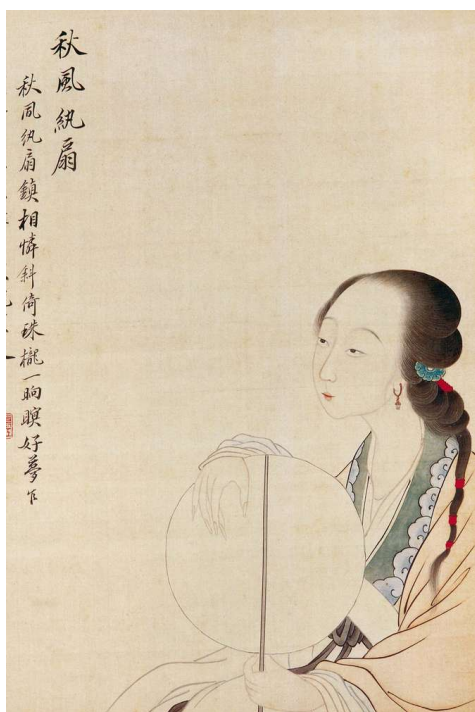 秋風紈扇
秋風紈扇鎮相憐斜倚珠櫳一晌瞑好夢乍